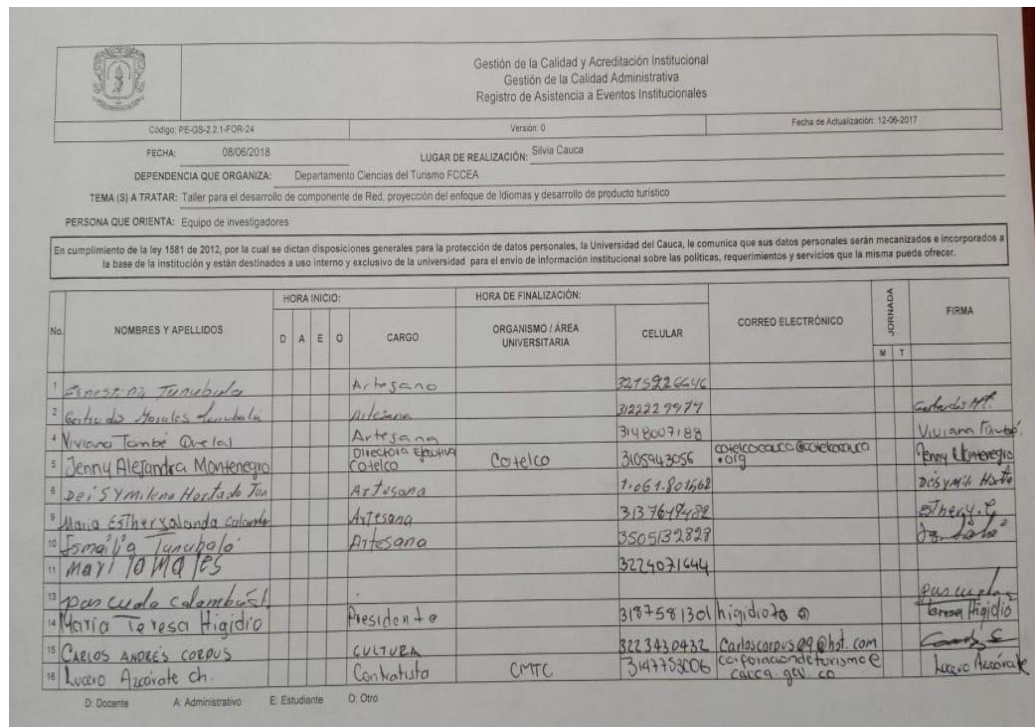 Gestión de la Calidad y Acreditación Institucional
Gestión de la Calidad Administrativa
Registro de Asistencia a Eventos Institucionales
Código: PE-GS-2.2.1-FOR-24 Versión: 0 Fecha de Actualización: 12-06-2017
FECHA: 08/06/2018 LUGAR DE REALIZACIÓN: Silvia Cauca
DEPENDENCIA QUE ORGANIZA: Departamento Ciencias del Turismo FCCEA
TEMA (S) A TRATAR: Taller para el desarrollo de componente de Red, proyección del enfoque de Idiomas y desarrollo de producto turístico
PERSONA QUE ORIENTA: Equipo de investigadores
En cumplimiento de la ley 1581 de 2012, por la cual se dictan disposiciones generales para la protección de datos personales, la Universidad del Cauca, le comunica que sus datos personales serán mecanizados e incorporados a
la base de la institución y están destinados a uso interno y exclusivo de la universidad para el envío de información institucional sobre las políticas, requerimientos y servicios que la misma pueda ofrecer.
HORA INICIO: HORA DE FINALIZACIÓN:
No. NOMBRES Y APELLIDOS D A E O CARGO ORGANISMO / ÁREA UNIVERSITARIA CELULAR CORREO ELECTRÓNICO JORNADA M T FIRMA
1 Ernestina Tunubala Artesano 3215926646
2 Gertrudis Morales Tunubalá 3122229979
4 Viviana Tombé Quelal Artesana 3148007188 Viviana Tombé
5 Jenny Alejandra Montenegro Directora Ejecutiva Cotelco Cotelco 3105943056 cotelcocauca@cotelcocauca.org Jenny Montenegro
Deisy Milena Hurtado Artesana
9 Maria Esther Artesana
10 Ismailia Tunubalá Artesana 3505132828
11 3224071644
13 pascuala
14 Maria Teresa Higidio Presidente 3187581301 Teresa Higidio
15 CARLOS ANDRÉS CORPUS CULTURA 3223430432 Carloscorpus09@hot.com
16 Lucero Azcárate ch. Contratista CMTC 3147753006 corporaciondeturismo@cauca.gov.co Lucero Azcárate
D: Docente A: Administrativo E: Estudiante O: Otro